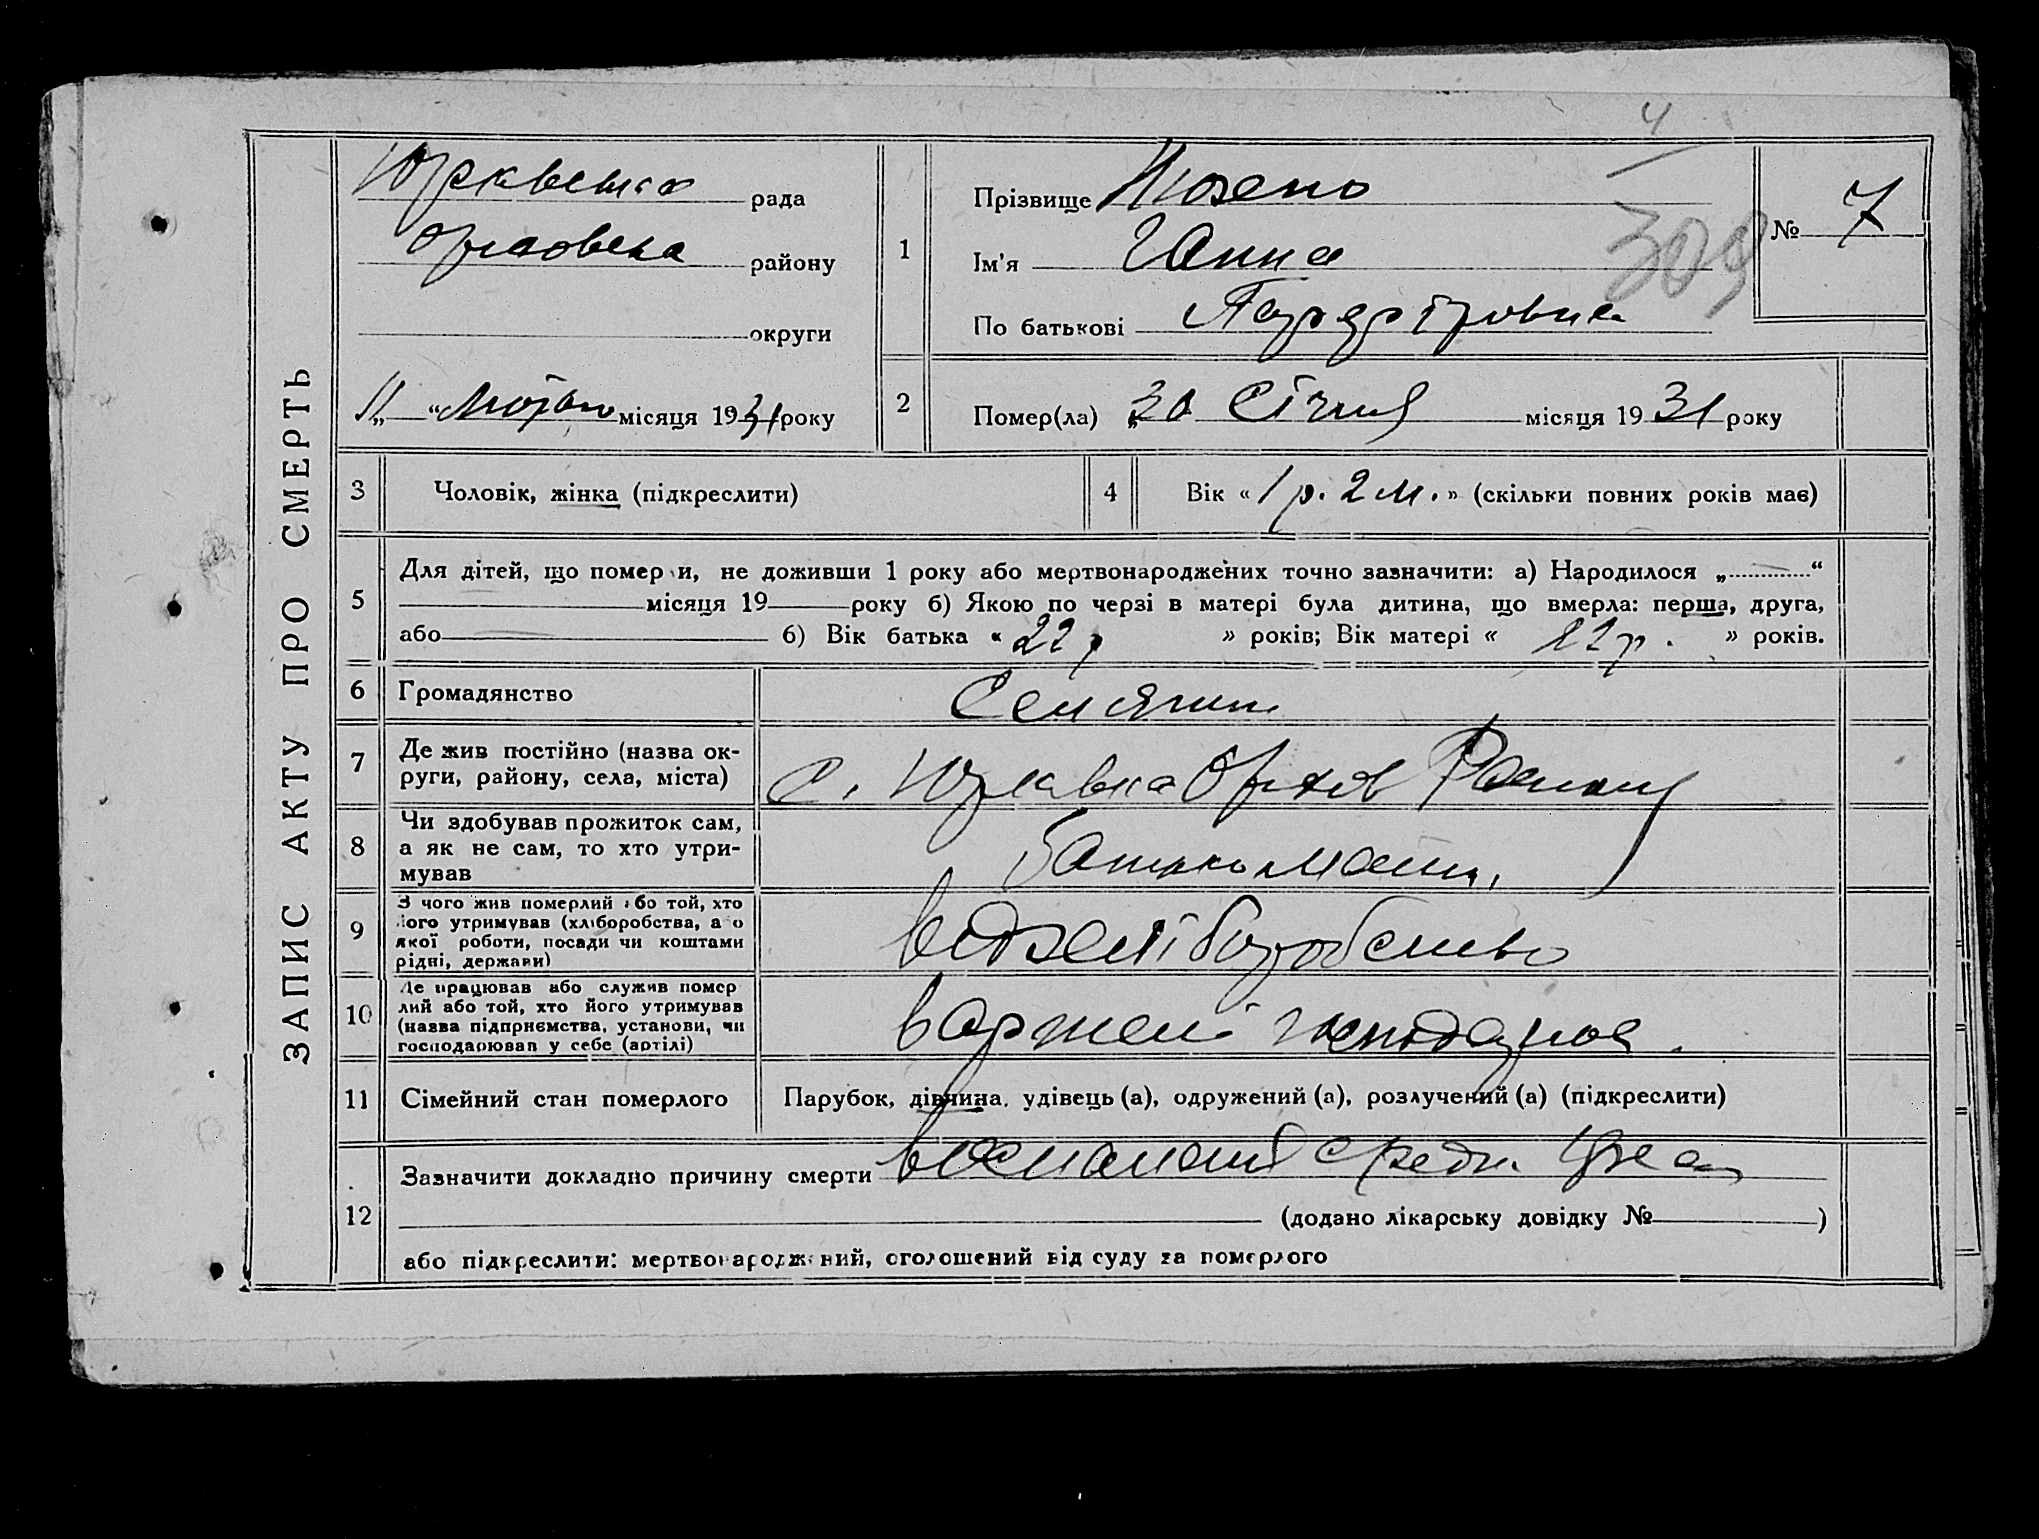 ЗАПИС АКТУ ПРО СМЕРТЬ
4
Юрквська рада
району
округи
11 „ “ Лютого місяця 1931 року
1
Прізвище
Ім'я Ганна
По батькові
309
№ 7
2
Помер(ла) „30 Січня місяця 1931 року
3 Чоловік, жінка (підкреслити)
4 Вік « 1 р. 2 м. » (скільки повних років має)
5
Для дітей, що померли, не доживши 1 року або мертвонароджених точно зазначити: а) Народилося „ “
місяця 19 року б) Якою по черзі в матері була дитина, що вмерла: перша, друга,
або б) Вік батька « 22 р » років; Вік матері « 22 р. » років.
6 Громадянство Селянин
7
Де жив постійно (назва ок-
руги, району, села, міста)
с. Юрковка Оріхов Району
8
Чи здобував прожиток сам,
а як не сам, то хто утри-
мував
Батько Мати.
9
З чого жив померлий або той, хто
його утримував (хліборобства, або
якої роботи, посади чи коштами
рідні, держави)
10
Де працював або служив помер
лий або той, хто його утримував
(назва підприємства, установи, чи
господарював у себе (артілі)
11 Сімейний стан померлого
Парубок, дівчина, удівець (а), одружений (а), розлучений (а) (підкреслити)
12
Зазначити докладно причину смерти
(додано лікарську довідку № )
або підкреслити: мертвонароджений, оголошений від суду за померлого